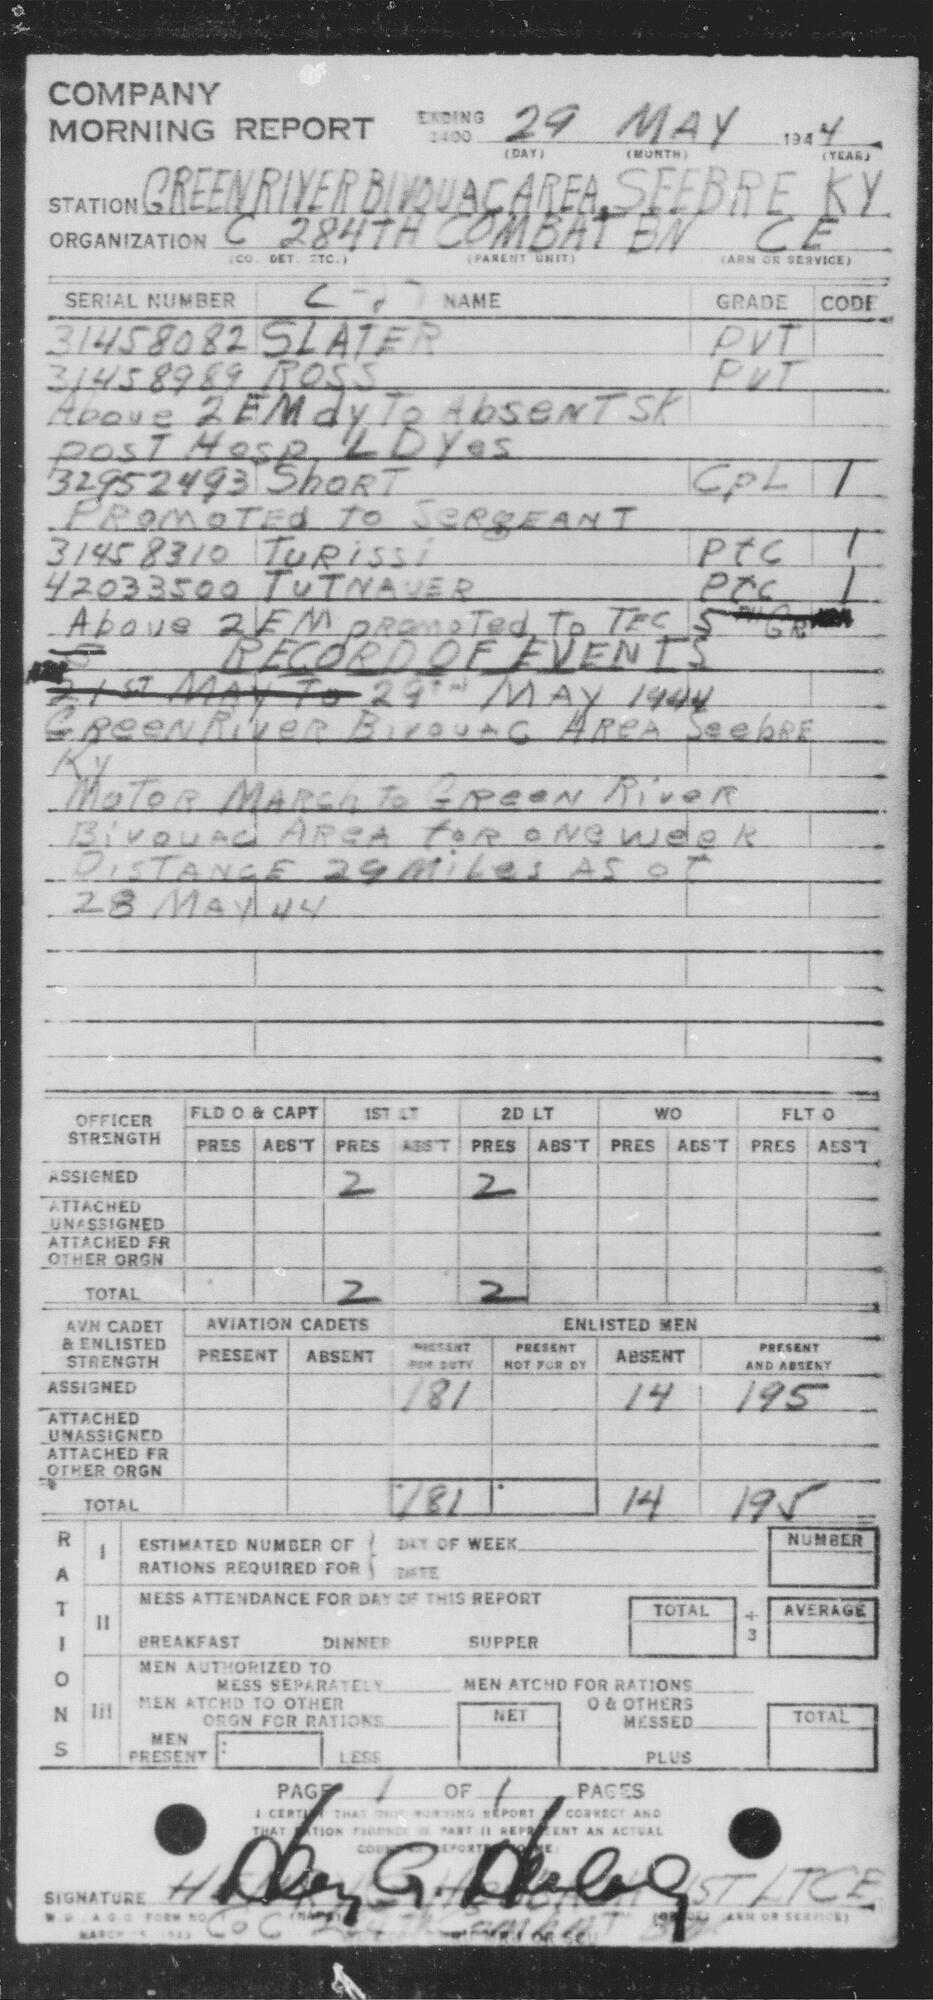 COMPANY
MORNING REPORT ENDING 2400 29 MAY 1944
(DAY) (MONTH) (YEAR)
STATION GREEN RIVER BIVOUAC AREA, SEEBRE KY
ORGANIZATION C 284TH COMBAT BN CE
(CO. DET. ETC.) (PARENT UNIT) (ARM OR SERVICE)
SERIAL NUMBER NAME GRADE CODE
31458082 SLATER PVT
31458989 ROSS PVT
Above 2 EM dy To AbseNT SK
post Hosp LD Yes
32952493 ShoRT CpL 1
PRomoTed To SeRgeANT
31458310 TuRissi Pfc 1
42033500 TUTNAUER Pfc 1
Above 2 EM promoTed To TEC 5 GR
5 RECORD OF EVENTS
21ST MAY To 29TH MAY 1944
GReeN RiveR Bivouac AREA SeebRE
Ky
MoToR MARch To GReeN RiveR
BivouAc AReA foR oNe week
DisTANCE 29 Miles AS of
28 MAY 44
OFFICER STRENGTH FLD O & CAPT 1ST LT 2D LT WO FLT O
PRES ABS'T PRES ABS'T PRES ABS'T PRES ABS'T PRES ABS'T
ASSIGNED 2 2
ATTACHED UNASSIGNED
ATTACHED FR OTHER ORGN
TOTAL 2 2
AVN CADET & ENLISTED STRENGTH AVIATION CADETS ENLISTED MEN
PRESENT ABSENT PRESENT FOR DUTY PRESENT NOT FOR DY ABSENT PRESENT AND ABSENT
ASSIGNED 181 14 195
ATTACHED UNASSIGNED
ATTACHED FR OTHER ORGN
TOTAL 181 14 195
RATIONS
I ESTIMATED NUMBER OF DAY OF WEEK NUMBER
RATIONS REQUIRED FOR DATE
II MESS ATTENDANCE FOR DAY OF THIS REPORT TOTAL ÷ 3 AVERAGE
BREAKFAST DINNER SUPPER
III MEN AUTHORIZED TO
MESS SEPARATELY MEN ATCHD FOR RATIONS
MEN ATCHD TO OTHER O & OTHERS
ORGN FOR RATIONS NET MESSED TOTAL
MEN PRESENT LESS PLUS
PAGE 1 OF 1 PAGES
I CERTIFY THAT THIS MORNING REPORT IS CORRECT AND
THAT RATION FIGURES IN PART II REPRESENT AN ACTUAL
SIGNATURE 1ST LT CE
W.D., A.G.O. FORM NO. (NAME) (GRADE) (ARM OR SERVICE)
Co C